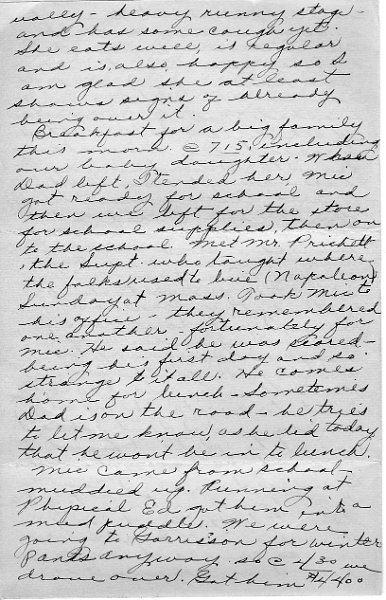 ually - heavy runny stage -
and has some cough yet.
She eats well, is regular
and is also happy so I
am glad she at least
shows signs of already
being over it.
Breakfast for a big family
this morn. @ 715, including
our baby daughter. When
Dad left, I tended her. Mic
got ready for school and
then we left for the store
for school supplies, then on
to the school. Met Mr. Prichett
, the Supt. who taught where
the folks used to live (Napoleon)
Sunday at Mass. Took Mic to
his office - they remembered
one another - fortunately for
Mic. He said he was scared -
being his first day and so
strange to it all. He comes
home for lunch - Sometimes
Dad is on the road - he tries
to let me know, as he did today
that he wont be in to lunch.
Mic came from school -
muddied up. Running at
Physical Ed. got him into a
mud puddle. We were
going to Garrison for winter
pants anyway. so @ 4/30 we
drove over. Got him $4/400